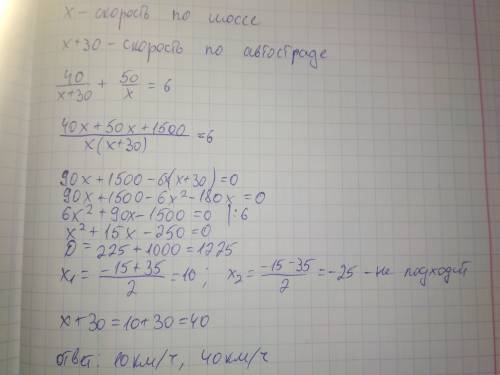 x – скорость по шоссе
x+30 – скорость по автостраде
40/(x+30) + 50/x = 6
(40x+50x+1500)/(x(x+30)) = 6
90x+1500-6x(x+30)=0
90x+1500-6x²-180x=0
6x²+90x-1500=0 |:6
x²+15x-250=0
D=225+1000=1225
x₁= (-15+35)/2 =10; x₂= (-15-35)/2 =-25 – не подходит
x+30=10+30=40
ответ: 10км/ч, 40км/ч